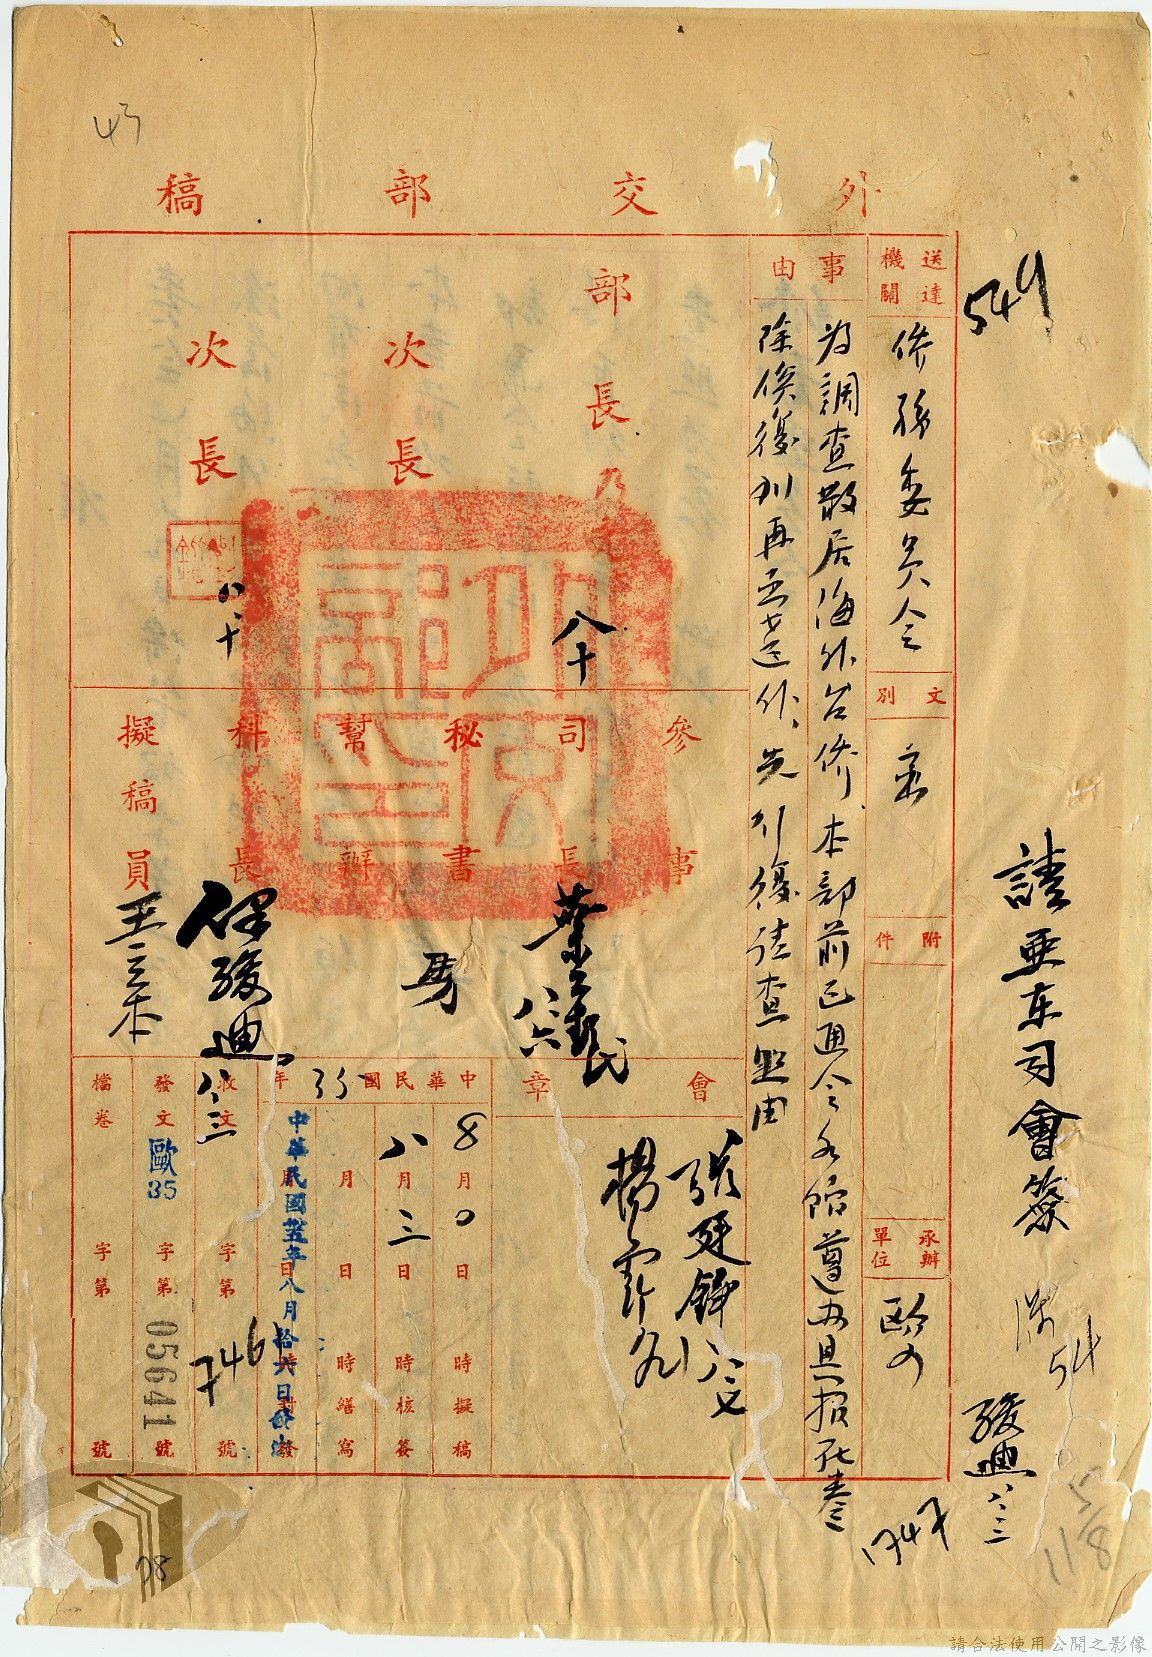 43
外交部稿
549
請亞东司會簽
54
駿迪 八、三
送達機關
僑務委員会
文別
附件
承辦單位
歐
事由
为調查散居海外台僑本部前已通令各館遵办具报在卷
除俟復到再
先行復請查照由
1747
部長
次長
次長
八十
八、十
參事
司長
秘書
幫辦
科長
擬稿員
八六
保駿迪 八、三
王三本
會章
張廷錚
楊雲
中華民國35年
8月 日 時擬稿
八月三日 時核簽
月 日 時繕寫
月 日 時封發
中華民國卅五年八月拾六日發出
收文 字第 號
7461
發文 歐35 字第05641號
檔卷 字第 號
118
78
請合法使用公開之影像